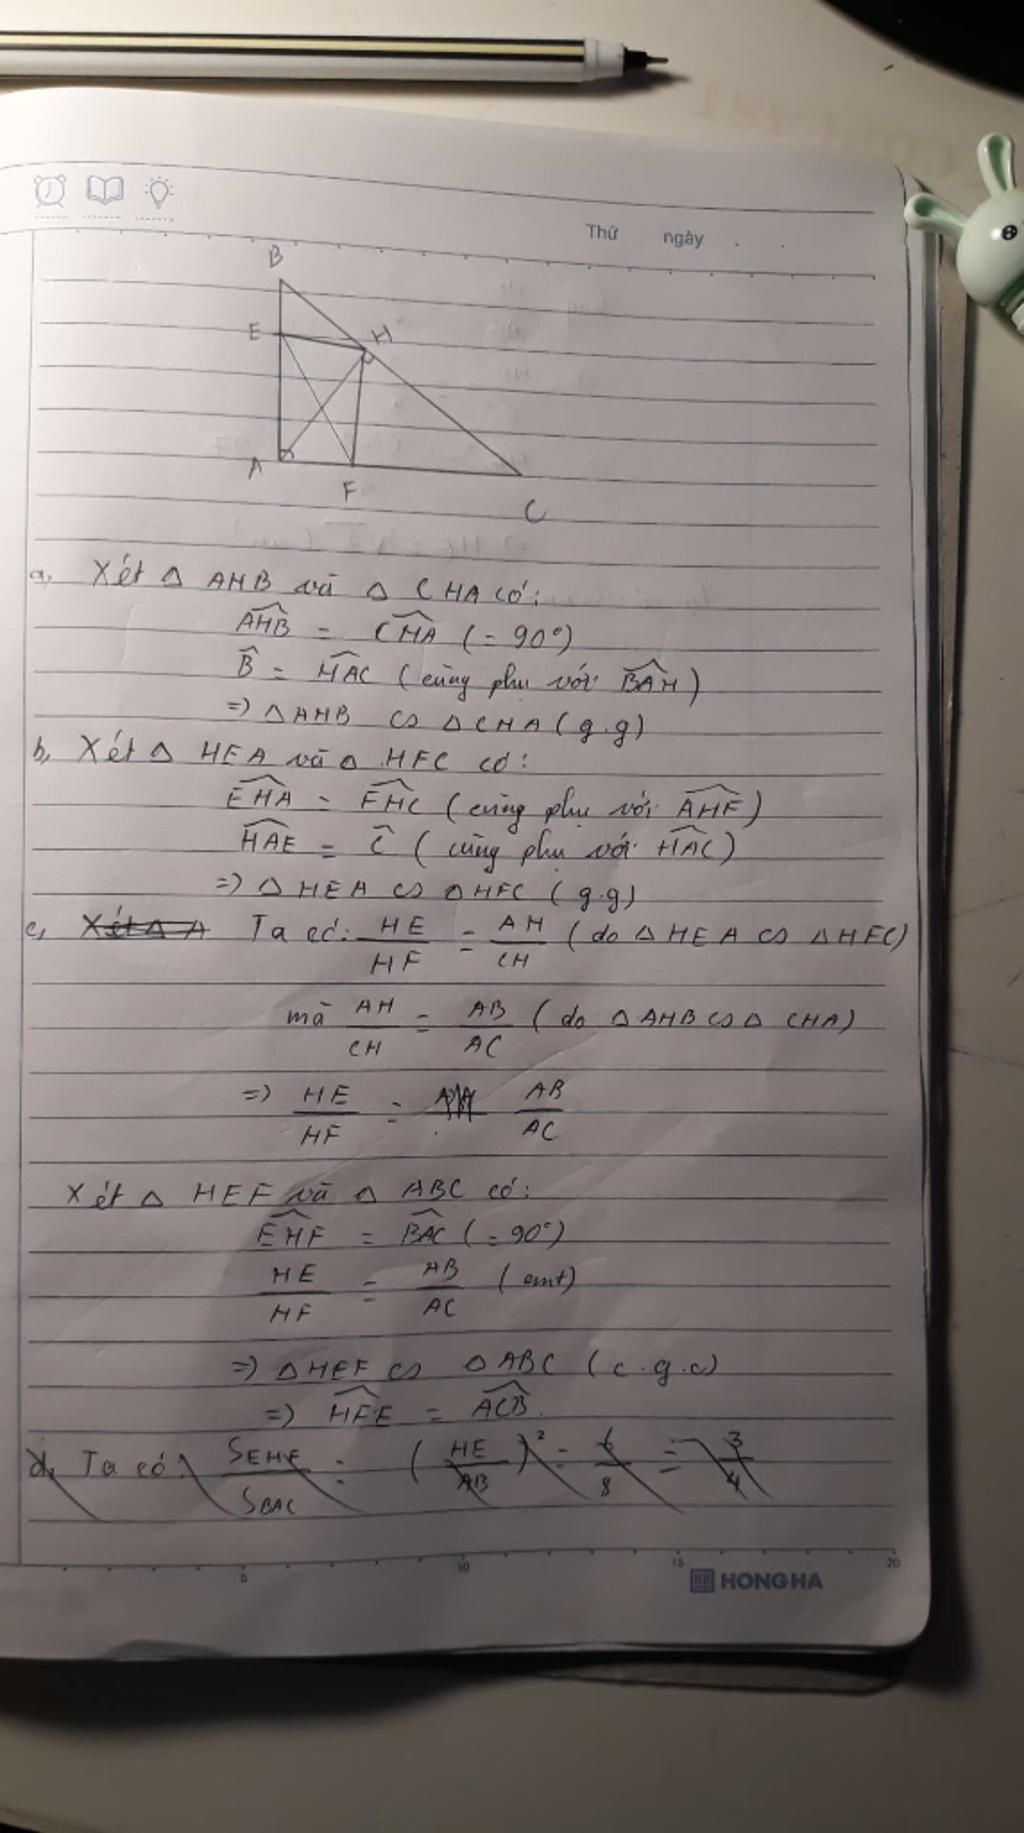 Thứ ngày . .
B
E H
A F C
a, Xét △ AHB và △ CHA có:
\widehat{AHB} = \widehat{CHA} (= 90°)
\widehat{B} = \widehat{HAC} (cùng phụ với \widehat{BAH})
=> △AHB ∽ △CHA (g.g)
b, Xét △ HEA và △ HFC có:
\widehat{EHA} = \widehat{FHC} (cùng phụ với \widehat{AHF})
\widehat{HAE} = \widehat{C} (cùng phụ với \widehat{HAC})
=> △HEA ∽ △HFC (g.g)
c, Xét △ A Ta có: HE/HF = AH/CH (do △HEA ∽ △HFC)
mà AH/CH = AB/AC (do △AHB ∽ △CHA)
=> HE/HF = AB/AC
Xét △ HEF và △ ABC có:
\widehat{EHF} = \widehat{BAC} (= 90°)
HE/HF = AB/AC (cmt)
=> △HEF ∽ △ABC (c.g.c)
=> \widehat{HFE} = \widehat{ACB}.
d, Ta có: S_{EHF}/S_{BAC} = (HE/AB)² = 6/8 = 3/4
5 10 15 20
HONG HA